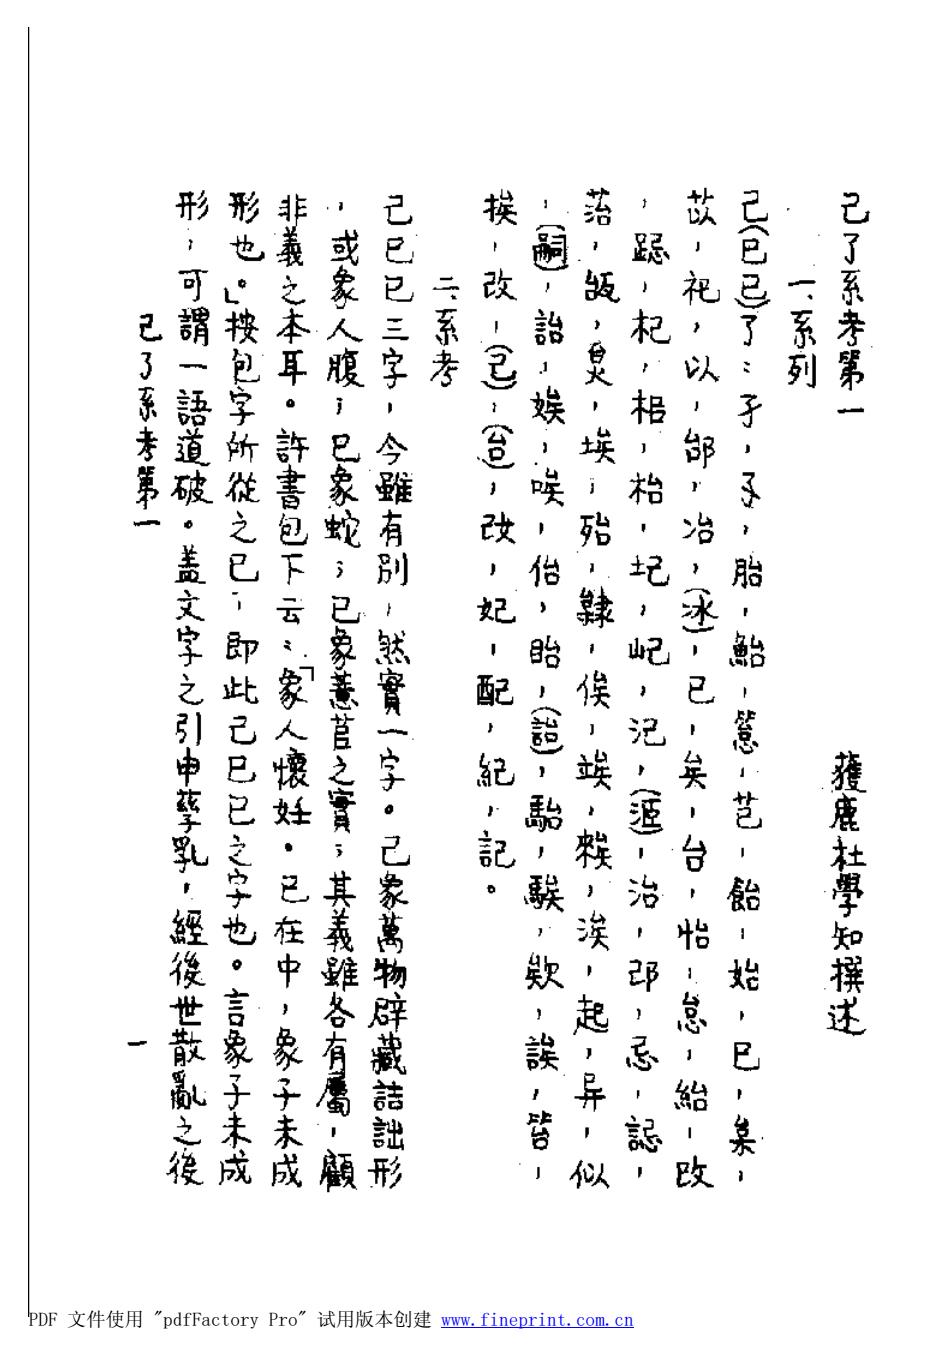 己了系考第一
獲鹿杜學知撰述
一、系列
己(巳已)了：孑，孓，胎，鮐，䈚，芑，飴，始，巳，枲，
苡，祀，以，邰，冶，(冰)，已，矣，台，怡，怠，紿，改
，跽，杞，梠，枱，圮，屺，汜，(洍)，治，邔，忌，誋，
菭，瓵，炱，埃，殆，隸，俟，竢，䅘，涘，起，异，似
，(嗣)，詒，娭，唉，佁，眙，(詒)，駘，騃，欸，誒，笞，
挨，改，(己)，(台)，攺，妃，配，紀，記。
二、系考
己巳已三字，今雖有別，然實一字。己象萬物辟藏詰詘形
，或象人腹；巳象蛇；已象薏苢之實；其義雖各有屬，顧
非義之本耳。許書包下云：「象人懷妊。巳在中，象子未成
形也。」按包字所從之巳，即此己巳已之字也。言象子未成
形，可謂一語道破。盖文字之引申孳乳，經後世散亂之後
己了系考第一
一
PDF 文件使用 "pdfFactory Pro" 试用版本创建 www.fineprint.com.cn